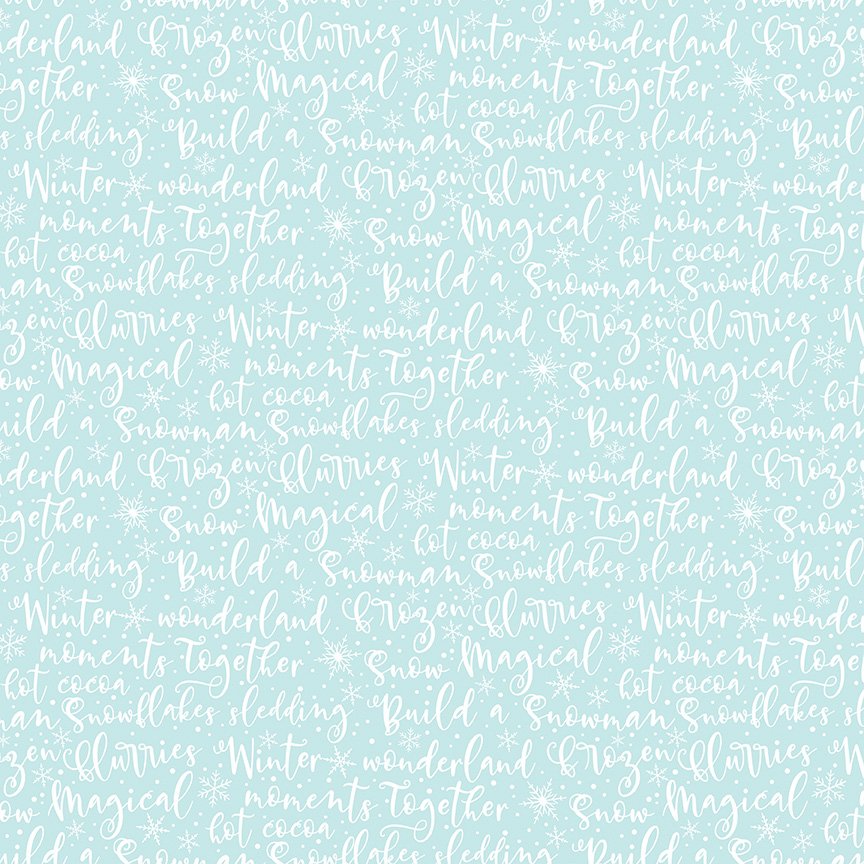 nderland Frozen Flurries Winter wonderland Frozen
ogether Snow Magical moments Together Snow
hot cocoa
s sledding Build a Snowman Snowflakes sledding Buil
Winter wonderland Frozen Flurries Winter wonde
moments Together Snow Magical moments Toge
hot cocoa hot cocoa
man Snowflakes sledding Build a Snowman Snowflakes sl
ozen Flurries Winter wonderland Frozen Flurries
ow Magical moments Together Snow Magical
hot cocoa hot
uild a Snowman Snowflakes sledding Build a Snowman
nderland Frozen Flurries Winter wonderland Frozen
ogether Snow Magical moments Together Snow
hot cocoa
s sledding Build a Snowman Snowflakes sledding Buil
Winter wonderland Frozen Flurries Winter wonde
moments Together Snow Magical moments Toge
hot cocoa hot cocoa
man Snowflakes sledding Build a Snowman Snowflakes sl
ozen Flurries Winter wonderland Frozen Flurries
ow Magical moments Together Snow Magical
hot cocoa hot
uild a Snowman Snowflakes sledding Build a Snowman